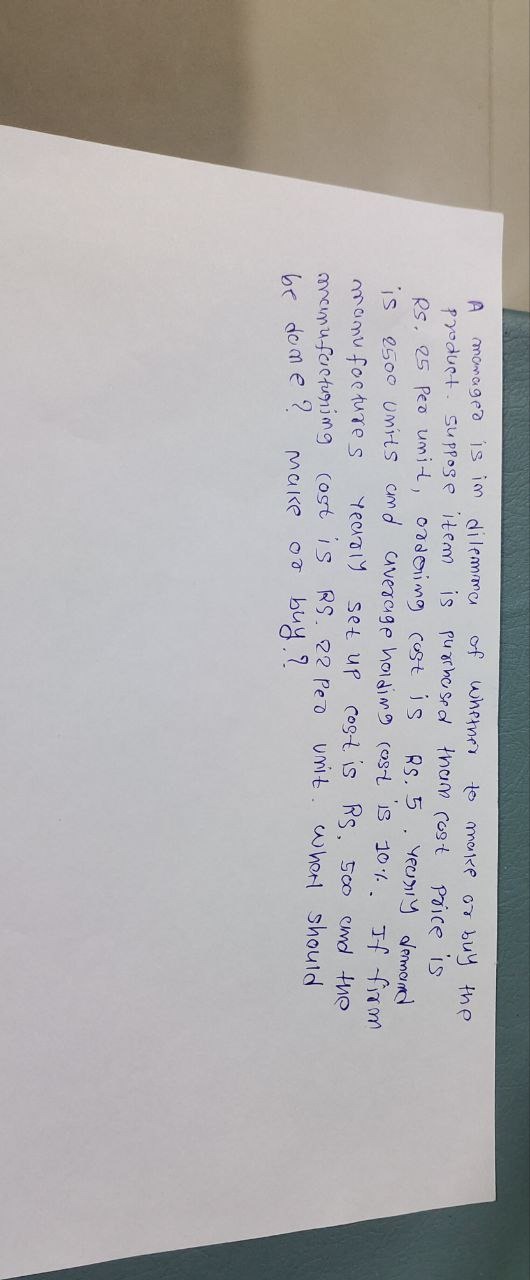 A manager is in dilemma of whether to make or buy the
product. suppose item is purchased than cost price is
RS. 25 Per unit, ordering cost is RS. 5. Yearly demand
is 2500 units and average holding cost is 10%. If firm
manufactures yearly set up cost is RS. 500 and the
manufacturing cost is RS. 22 Per unit. what should
be done? make or buy?